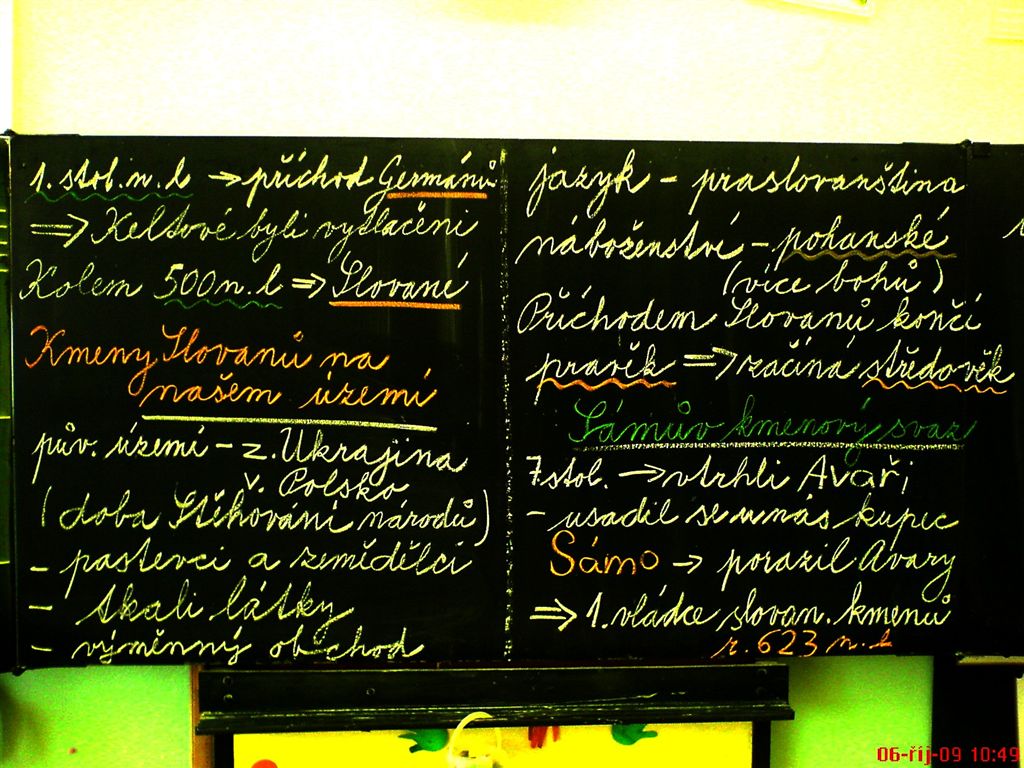 1. stol. n. l → příchod Germánů
⇒ Keltové byli vytlačeni
Kolem 500 n. l ⇒ Slované
Kmeny Slovanů na
našem území
pův. území - z. Ukrajina
v. Polsko
(doba Stěhování národů)
- pastevci a zemědělci
- tkali látky
- výměnný obchod
jazyk - praslovanština
náboženství - pohanské
(více bohů)
Příchodem Slovanů končí
pravěk ⇒ začíná středověk
Sámův kmenový svaz
7 stol. → vtrhli Avaři
- usadil se u nás kupec
Sámo → porazil Avary
⇒ 1. vládce slovan. kmenů
r. 623 n. l
06-říj-09 10:49